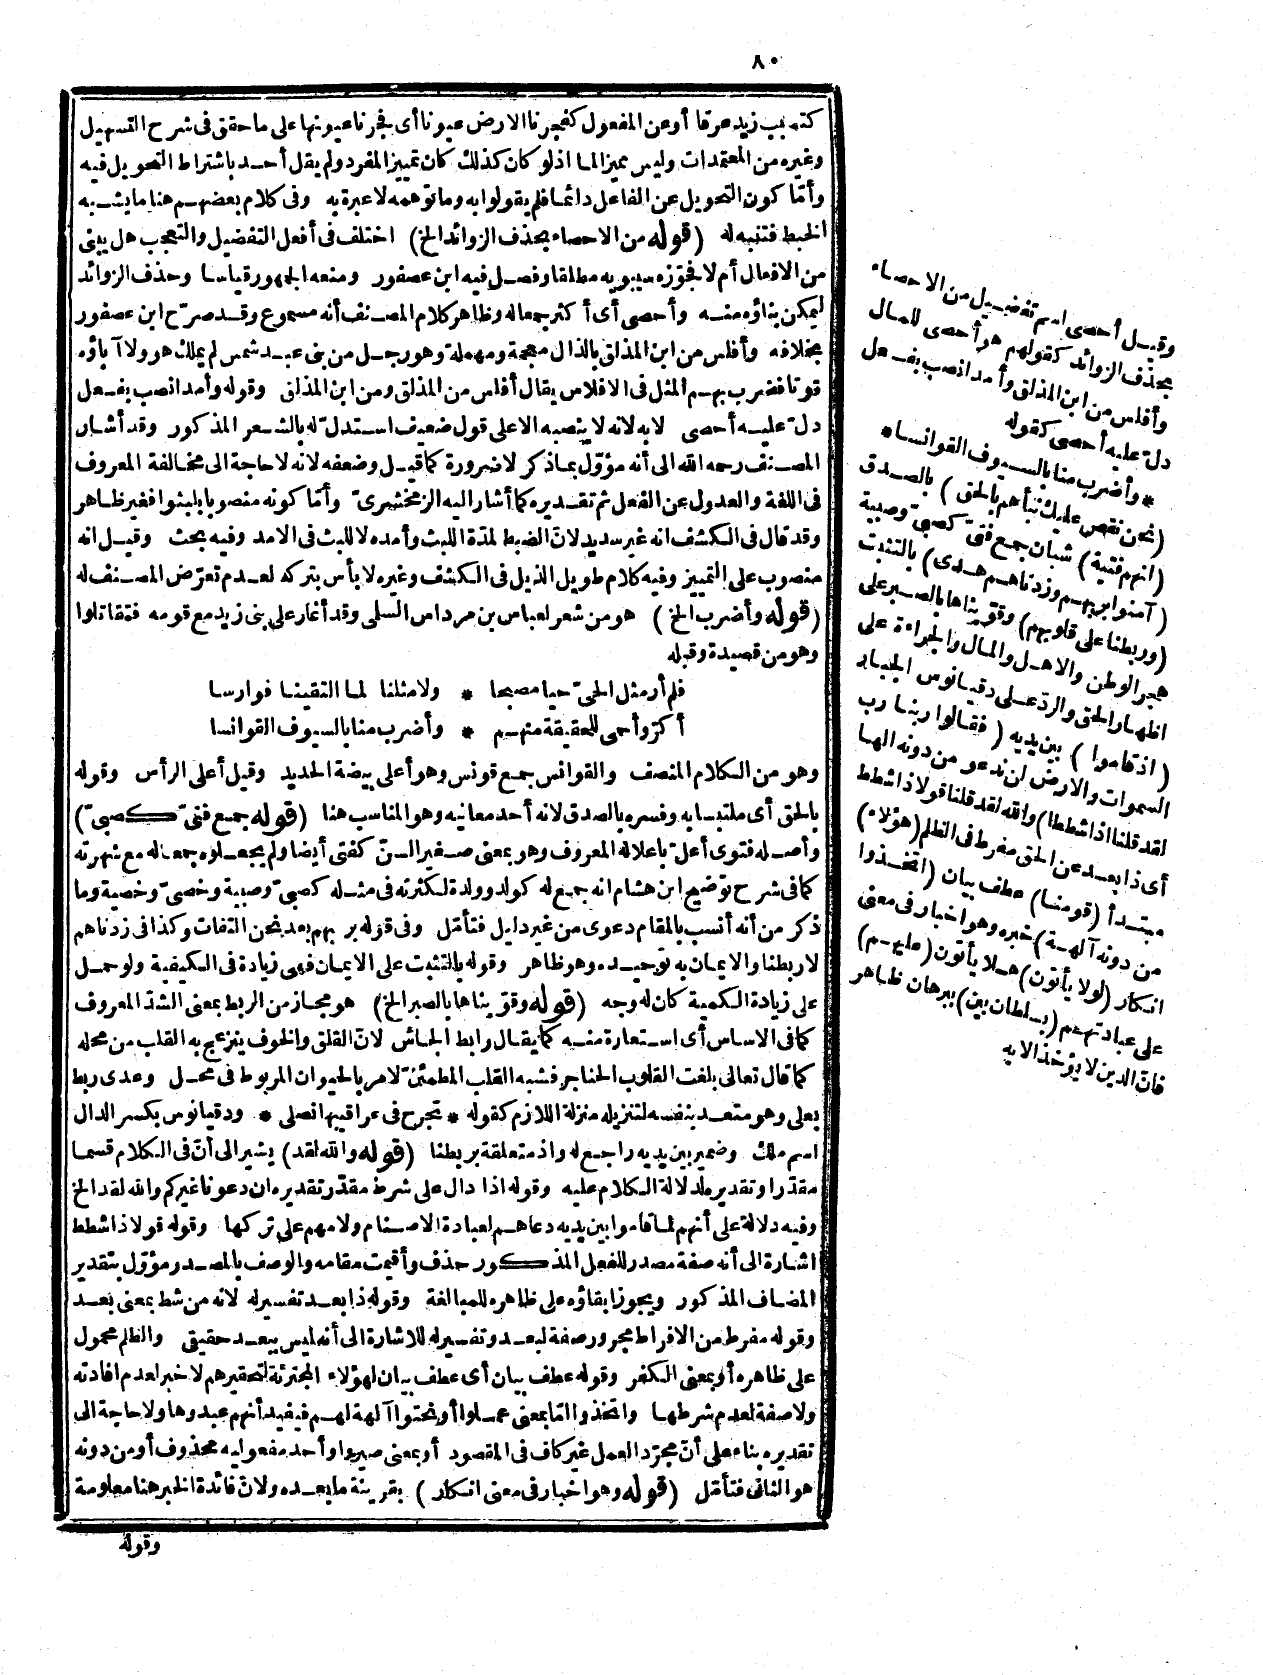 ٨٠
كتصبب زيد عرقا أو عن المفعول كفجرنا الارض عيونا أى فجرنا عيونها على ما حقق فى شرح التسهيل
وغيره من المعتمدات وليس مميزا لما اذ لو كان كذلك كان تمييز المفرد ولم يقل أحد باشتراط التحويل فيه
وأمّا كون التحويل عن الفاعل دائما فلم يقولوا به وما توهمه لا عبرة به وفى كلام بعضهم هنا ما يشبه
الخبط فتنبه له (قوله من الاحصاء بحذف الزوائد الخ) اختلف فى أفعل التفضيل والتعجب هل يبنى
من الافعال أم لا فجوّزه سيبويه مطلقا وفصل فيه ابن عصفور ومنعه الجمهور قياسا وحذف الزوائد
ليمكن بناؤه منه وأحصى أى أكثر جمعا له وظاهر كلام المصنف أنه مسموع وقد صرّح ابن عصفور
بخلافه وأفلس من ابن المذلق بالذال معجمة ومهملة وهو رجل من بنى عبد شمس لم يملك هو ولا آباؤه
قوتا فضرب بهم المثل فى الافلاس يقال أفلس من المذلق ومن ابن المذلق وقوله وأمدا نصب بفعل
دلّ عليه أحصى لا به لانه لا ينصبه الا على قول ضعيف استدلّ له بالشعر المذكور وقد أشار
المصنف رحمه الله الى أنه مؤوّل بما ذكر لا ضرورة كما قيل وضعفه لانه لا حاجة الى مخالفة المعروف
فى اللغة والعدول عن الفعل ثم تقديره كما أشار اليه الزمخشرىّ وأمّا كونه منصوبا بلبثوا فغير ظاهر
وقد قال فى الكشف انه غير سديد لانّ الضبط لمدّة اللبث وأمده لا للبث فى الامد وفيه بحث وقيل انه
منصوب على التمييز وفيه كلام طويل الذيل فى الكشف وغيره لا بأس بتركه لعدم تعرّض المصنف له
(قوله وأضرب الخ) هو من شعر لعباس بن مرداس السلمى وقد أغار على بنى زيد مع قومه فتقاتلوا
وهو من قصيدة وقبله
فلم أر مثل الحىّ حيا مصبحا * ولا مثلنا لما التقينا فوارسا
أكرّ وأحمى للحقيقة منهم * وأضرب منا بالسيوف القوانسا
وهو من الكلام المنصف والقوانس جمع قونس وهو أعلى بيضة الحديد وقيل أعلى الرأس وقوله
بالحق أى ملتبسا به وفسره بالصدق لانه أحد معانيه وهو المناسب هنا (قوله جمع فتىّ كصبىّ)
وأصله فتوى أعلّ باعلاله المعروف وهو بمعنى صغير السنّ كفتى أيضا ولم يجعلوه جمعا له مع شهرته
كما فى شرح توضيح ابن هشام انه جمع له كولد وولدة لكثرته فى مثله كصبىّ وصبية وخصىّ وخصية وما
ذكر من أنه أنسب بالمقام دعوى من غير دليل فتأمّل وفى قوله بربهم بعد نحن التفات وكذا فى زدناهم
لا ربطنا والايمان به توحيده وهو ظاهر وقوله بالتثبت على الايمان فهى زيادة فى الكيفية ولو حمل
على زيادة الكمية كان له وجه (قوله وقوّيناها بالصبر الخ) هو مجاز من الربط بمعنى الشدّ المعروف
كما فى الاساس أى استعارة منه كما يقال رابط الجاش لانّ القلق والخوف ينزعج به القلب من محله
كما قال تعالى بلغت القلوب الحناجر فشبه القلب المطمئنّ لامر بالحيوان المربوط فى محل وعدى ربط
بعلى وهو متعد بنفسه لتنزيله منزلة اللازم كقوله * تجرح فى عراقيبها نصلى * ودقيانوس بكسر الدال
اسم ملك وضمير بين يديه راجع له واذ متعلقة بربطنا (قوله والله لقد) يشير الى أنّ فى الكلام قسما
مقدّرا وتقديره لدلالة الكلام عليه وقوله اذا دال على شرط مقدّر تقديره ان دعونا غيركم والله لقد الخ
وفيه دلالة على أنهم لما قاموا بين يديه دعاهم لعبادة الاصنام ولامهم على تركها وقوله قولا ذا شطط
اشارة الى أنه صفة مصدر للفعل المذكور حذف وأقيمت مقامه والوصف بالمصدر مؤوّل بتقدير
المضاف المذكور ويجوز ابقاؤه على ظاهره للمبالغة وقوله ذا بعد تفسير له لانه من شط بمعنى بعد
وقوله مفرط من الافراط مجرور صفة لبعد وتفسير له للاشارة الى أنه ليس ببعد حقيقى والظلم محمول
على ظاهره أو بمعنى الكفر وقوله عطف بيان أى عطف بيان لهؤلاء المجترئة لتحقيرهم لا خبر لعدم افادته
ولا صفة لعدم شرطها واتخذوا امّا بمعنى عملوا أو نحتوا آلهة لهم فيفيد أنهم عبدوها ولا حاجة الى
تقديره بناء على أنّ مجرّد العمل غير كاف فى المقصود أو بمعنى صيروا وأحد مفعوليه محذوف أو من دونه
هو الثانى فتأمّل (قوله وهو اخبار فى معنى انكار) بقرينة ما بعده ولانّ فائدة الخبر هنا معلومة
وقوله
وقيل أحصى اسم تفضيل من الاحصاء
بحذف الزوائد كقولهم هو أحصى للمال
وأفلس من ابن المذلق وأمدا نصب بفعل
دلّ عليه أحصى كقوله
* وأضرب منا بالسيوف القوانسا *
(نحن نقص عليك نبأهم بالحق) بالصدق
(انهم فتية) شبان جمع فتىّ كصبىّ وصبية
(آمنوا بربهم وزدناهم هدى) بالتثبت
(وربطنا على قلوبهم) وقوّيناها بالصبر على
هجر الوطن والاهل والمال والجراءة على
اظهار الحق والردّ على دقيانوس الجبار
(اذ قاموا) بين يديه (فقالوا ربنا رب
السموات والارض لن ندعو من دونه الها
لقد قلنا اذا شططا) والله لقد قلنا قولا ذا شطط
أى ذا بعد عن الحق مفرط فى الظلم (هؤلاء)
مبتدأ (قومنا) عطف بيان (اتخذوا
من دونه آلهة) خبره وهو اخبار فى معنى
انكار (لولا يأتون) هلا يأتون (عليهم)
على عبادتهم (بسلطان بين) ببرهان ظاهر
فانّ الدين لا يؤخذ الا به